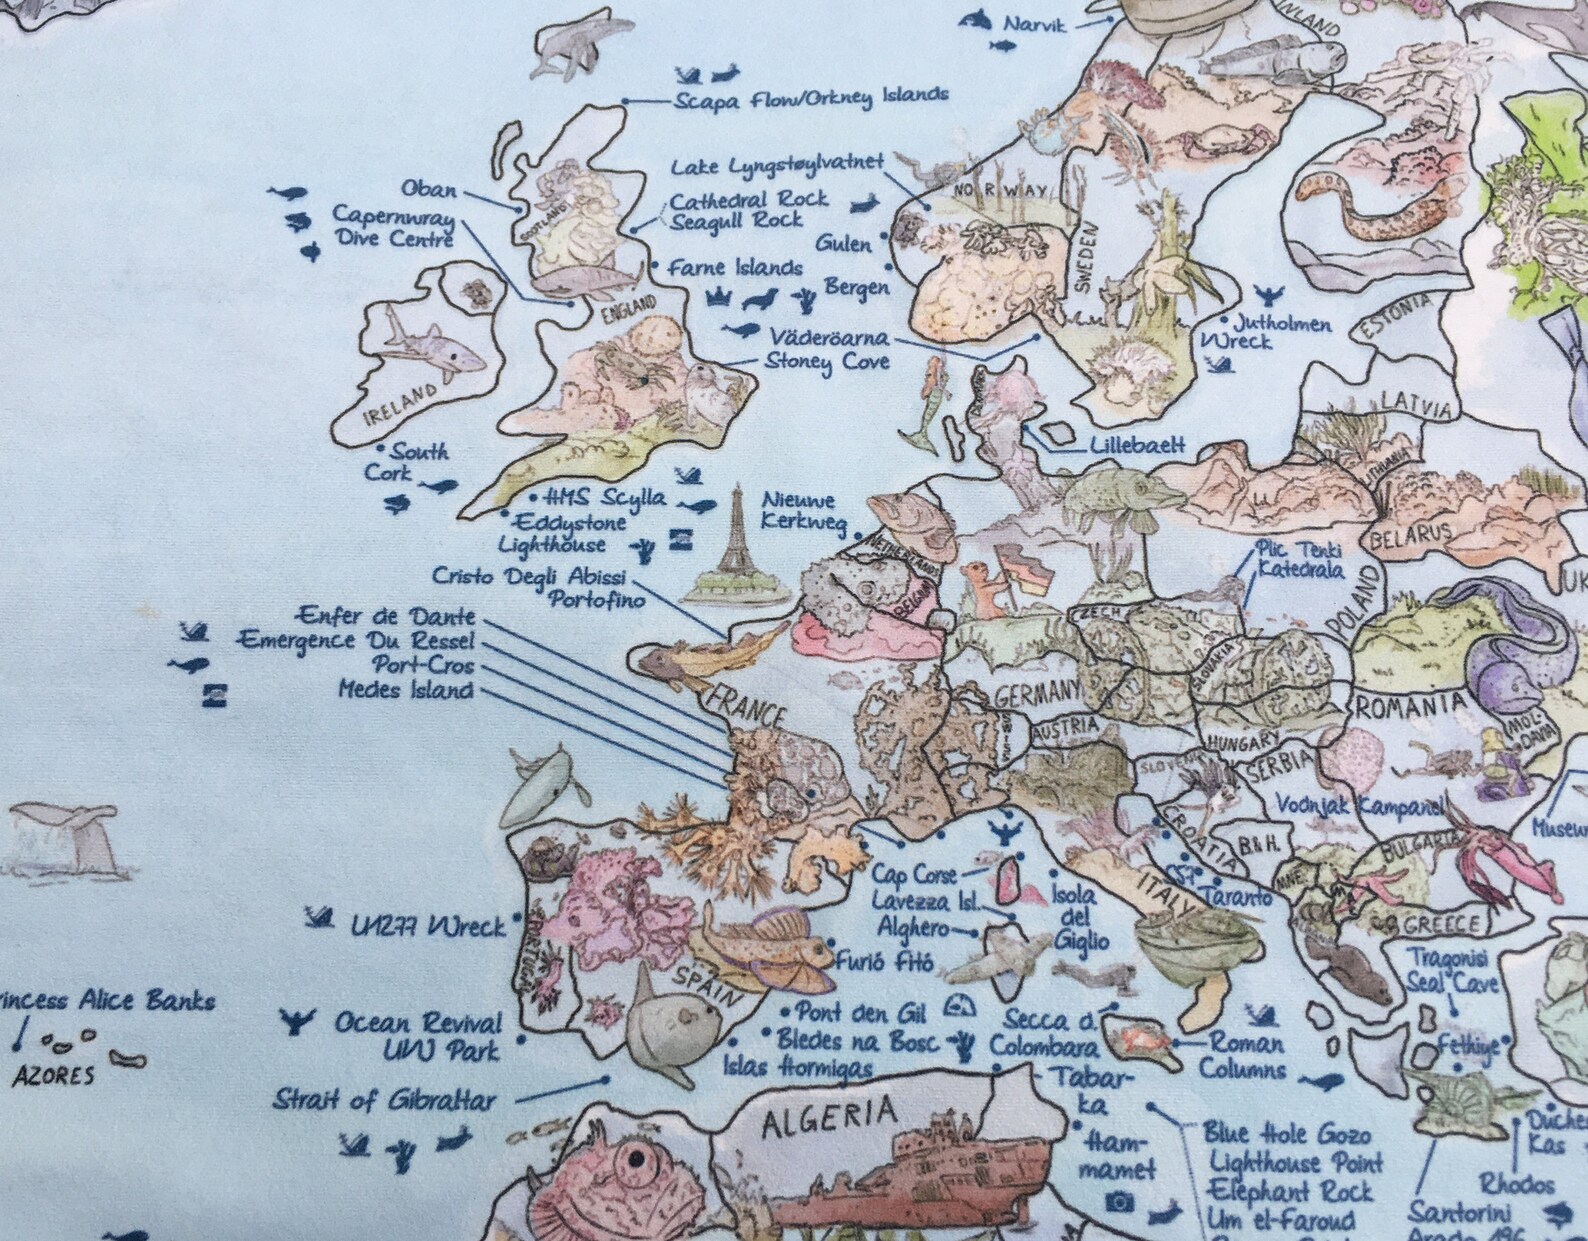 Narvik
INLAND
Scapa Flow/Orkney Islands
Lake Lyngstøylvatnet
NORWAY
Oban
Capernwray
Dive Centre
SCOTLAND
Cathedral Rock
Seagull Rock
Gulen
SWEDEN
Farne Islands
Bergen
ENGLAND
Väderöarna
Stoney Cove
Jutholmen
Wreck
ESTONIA
IRELAND
LATVIA
South
Cork
Lillebaelt
LITHUANIA
HMS Scylla
Eddystone
Lighthouse
Nieuwe
Kerkweg
NETHERLANDS
BELARUS
UK
Plic Tenki
Katedrala
Cristo Degli Abissi
Portofino
BELGIUM
CZECH
POLAND
Enfer de Dante
Emergence Du Ressel
Port-Cros
Medes Island
FRANCE
GERMANY
SLOVAKIA
ROMANIA
MOL-
DAVIA
SWISS
AUSTRIA
HUNGARY
SLOVENIA
SERBIA
Vodnjak Kampanel
Museu
CROATIA
B.&H.
BULGARIA
MNE.
Cap Corse
Lavezza Isl.
Alghero
Isola
del
Giglio
ITALY
Taranto
GREECE
U1277 Wreck
PORTUGAL
SPAIN
Furió Fitó
Tragonisi
Seal Cave
rincess Alice Banks
AZORES
Ocean Revival
UW Park
Pont den Gil
Bledes na Bosc
Islas Hormigas
Secca d.
Colombara
Roman
Columns
Fethiye
Strait of Gibraltar
ALGERIA
Tabar-
ka
Ham-
mamet
Blue Hole Gozo
Lighthouse Point
Elephant Rock
Um el-Faroud
Duche
Kas
Rhodos
Santorini